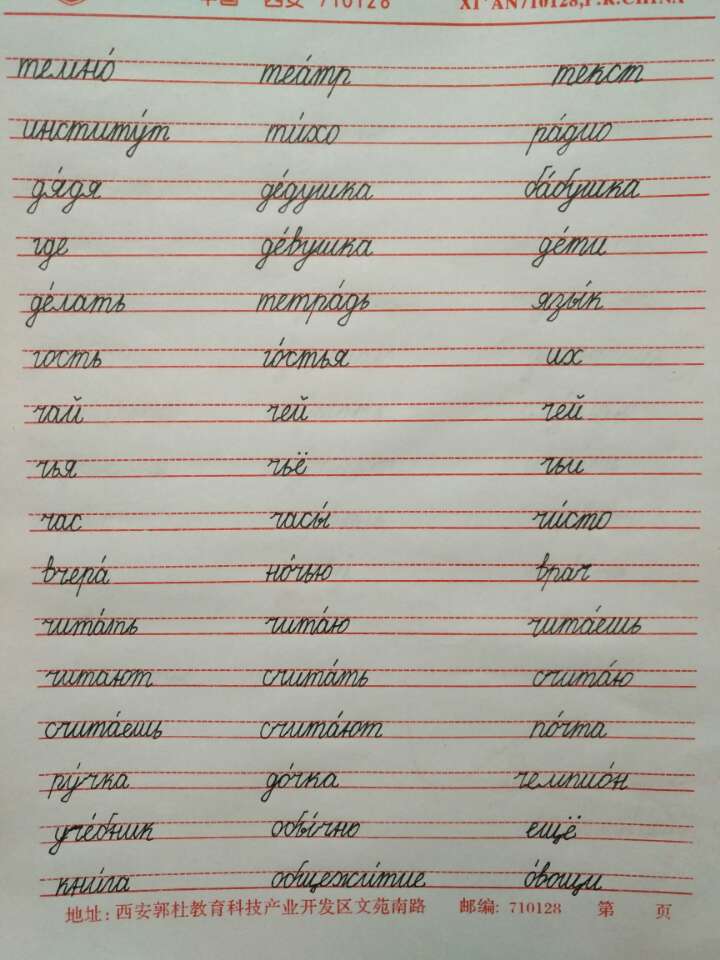 中国 西安 710128 XI'AN710128,P.R.CHINA
темно́ теа́тр текст
институ́т ти́хо ра́дио
дя́дя де́душка ба́бушка
где де́вушка де́ти
де́лать тетра́дь язы́к
гость го́стья их
чай чей чей
чья чьё чьи
час часы́ чи́сто
вчера́ но́чью врач
чита́ть чита́ю чита́ешь
читают счита́ть счита́ю
счита́ешь счита́ют по́чта
ру́чка до́чка чемпио́н
уче́бник обы́чно ещё
кни́га общежи́тие о́вощи
地址: 西安郭杜教育科技产业开发区文苑南路 邮编: 710128 第 页